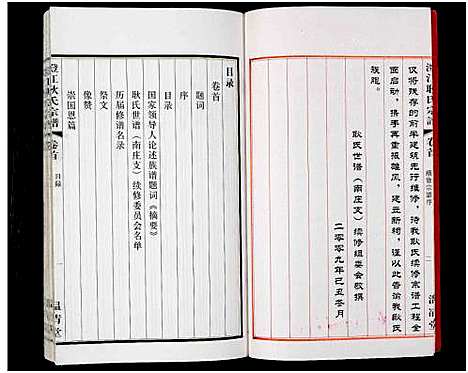 澄江耿氏宗谱
卷首
续修宗谱序
二
清堂
仅将残存的前半建筑先行维修，待我耿氏续修宗谱工程全
面启动，携手再重振雄风，建立新祠，谨以此告诵我耿氏
族现。
耿氏世谱（南庄支）续修组委会敬撰
二零零九年己丑冬月
目录
卷首
题词
序
目录
国家领导人论述族谱题词《摘要》
耿氏世谱（南庄支）续修委员会名单
历届修谱名录
祭文
像赞
崇国恩篇
澄江耿氏宗谱
卷首
目录
一
温清堂